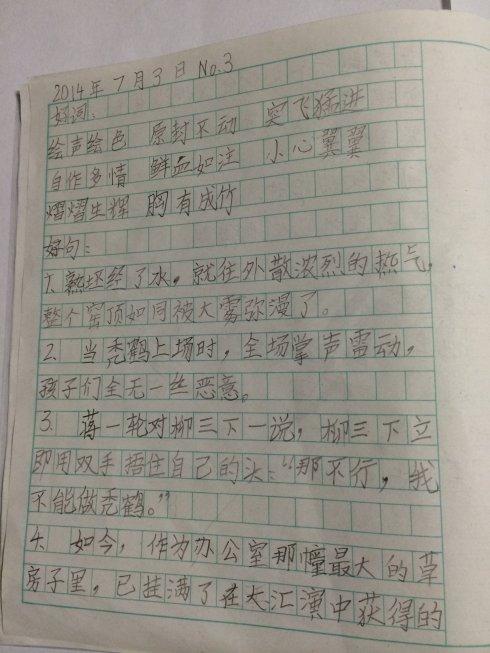 2014年7月3日 No.3
好词:
绘声绘色 原封不动 突飞猛进
自作多情 鲜血如注 小心翼翼
熠熠生辉 胸有成竹
好句:
1. 熟坯经了水，就往外散浓烈的热气，
整个窑顶如同被大雾弥漫了。
2. 当秃鹤上场时，全场掌声雷动，
孩子们全无一丝恶意。
3. 蒋一轮对柳三下一说，柳三下立
即用双手捂住自己的头:“那不行，我
不能做秃鹤。”
4. 如今，作为办公室那幢最大的草
房子里，已挂满了在大汇演中获得的